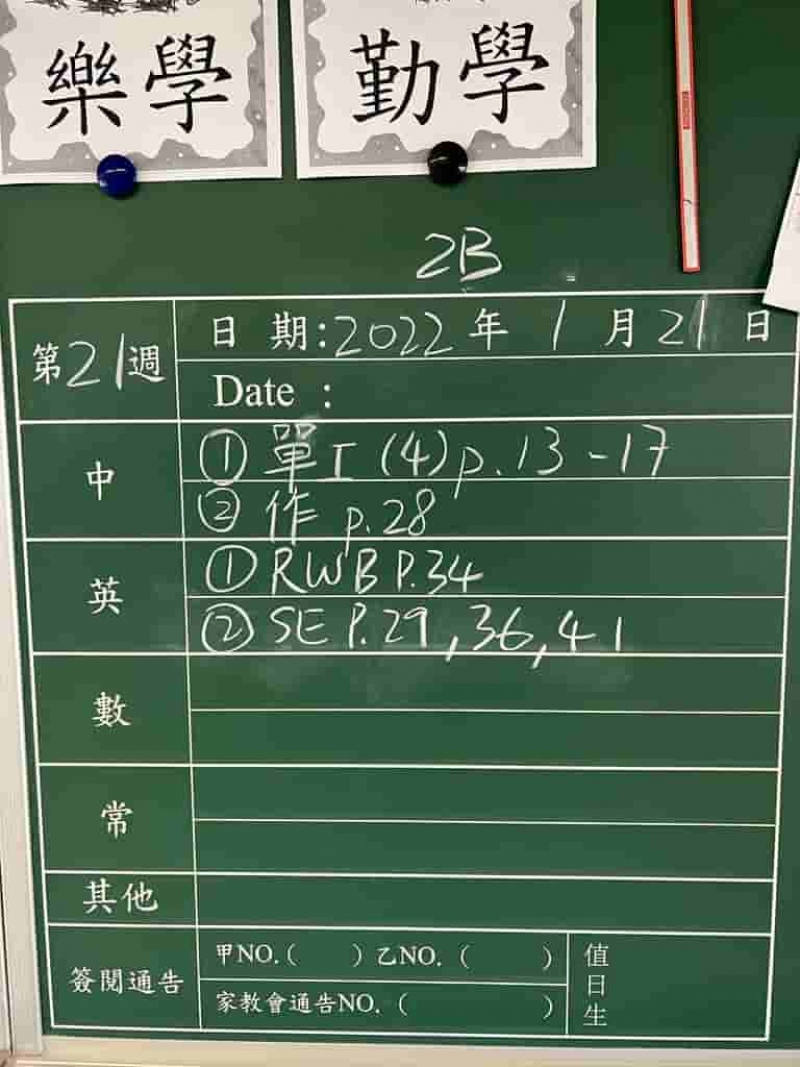 樂學 勤學
2B
第21週 日期:2022年1月21日
Date :
中 ①單I (4)p.13-17
②作 p.28
英 ①RWB P.34
②SE P.29,36,41
數
常
其他
簽閱通告 甲NO.( )乙NO.( ) 值日生
家教會通告NO.( )